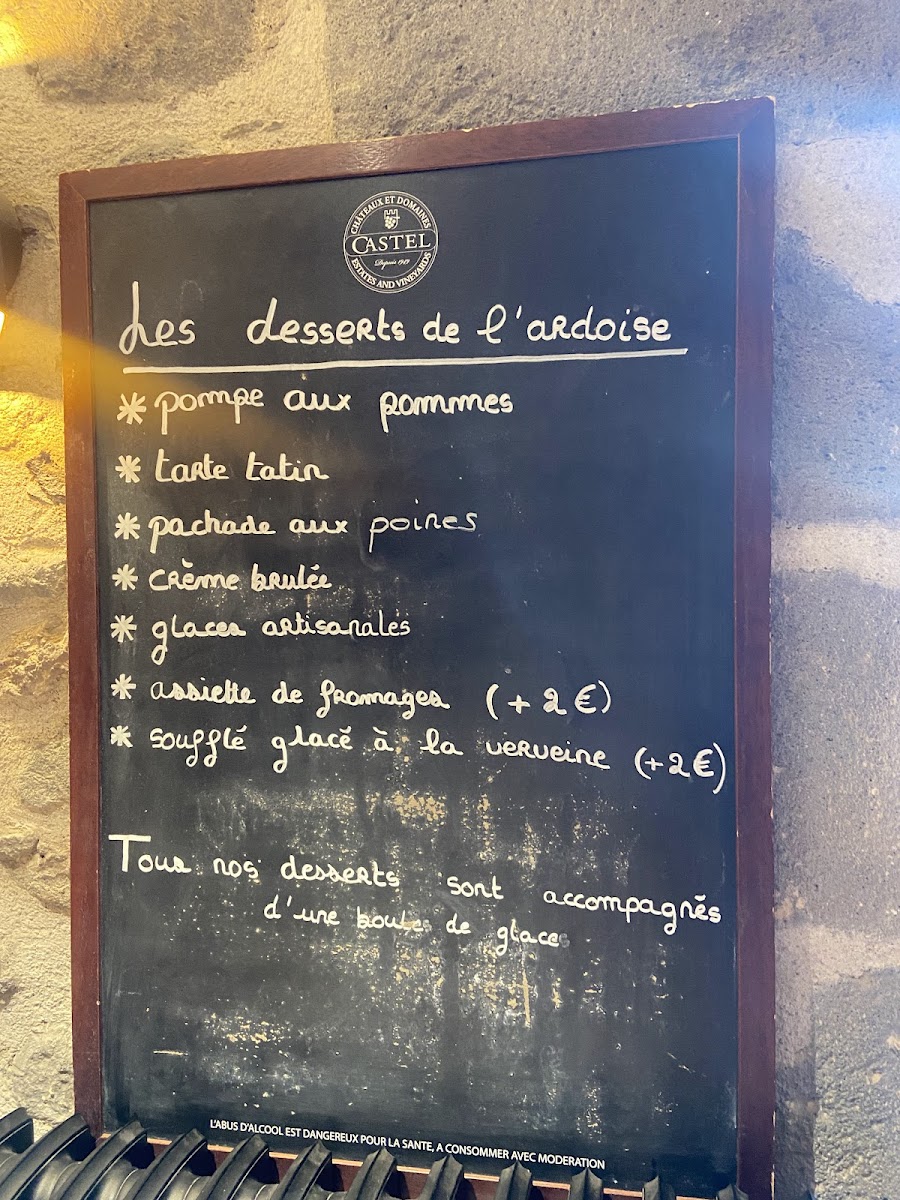 CHÂTEAUX ET DOMAINES
CASTEL
Depuis 1949
ESTATES AND VINEYARDS
Les desserts de l'ardoise
* pompe aux pommes
* tarte tatin
* pachade aux poires
* crème brulée
* glaces artisanales
* assiette de fromages (+ 2 €)
* soufflé glacé à la verveine (+2€)
Tous nos desserts sont accompagnés
d'une boule de glace
L'ABUS D'ALCOOL EST DANGEREUX POUR LA SANTE, A CONSOMMER AVEC MODERATION